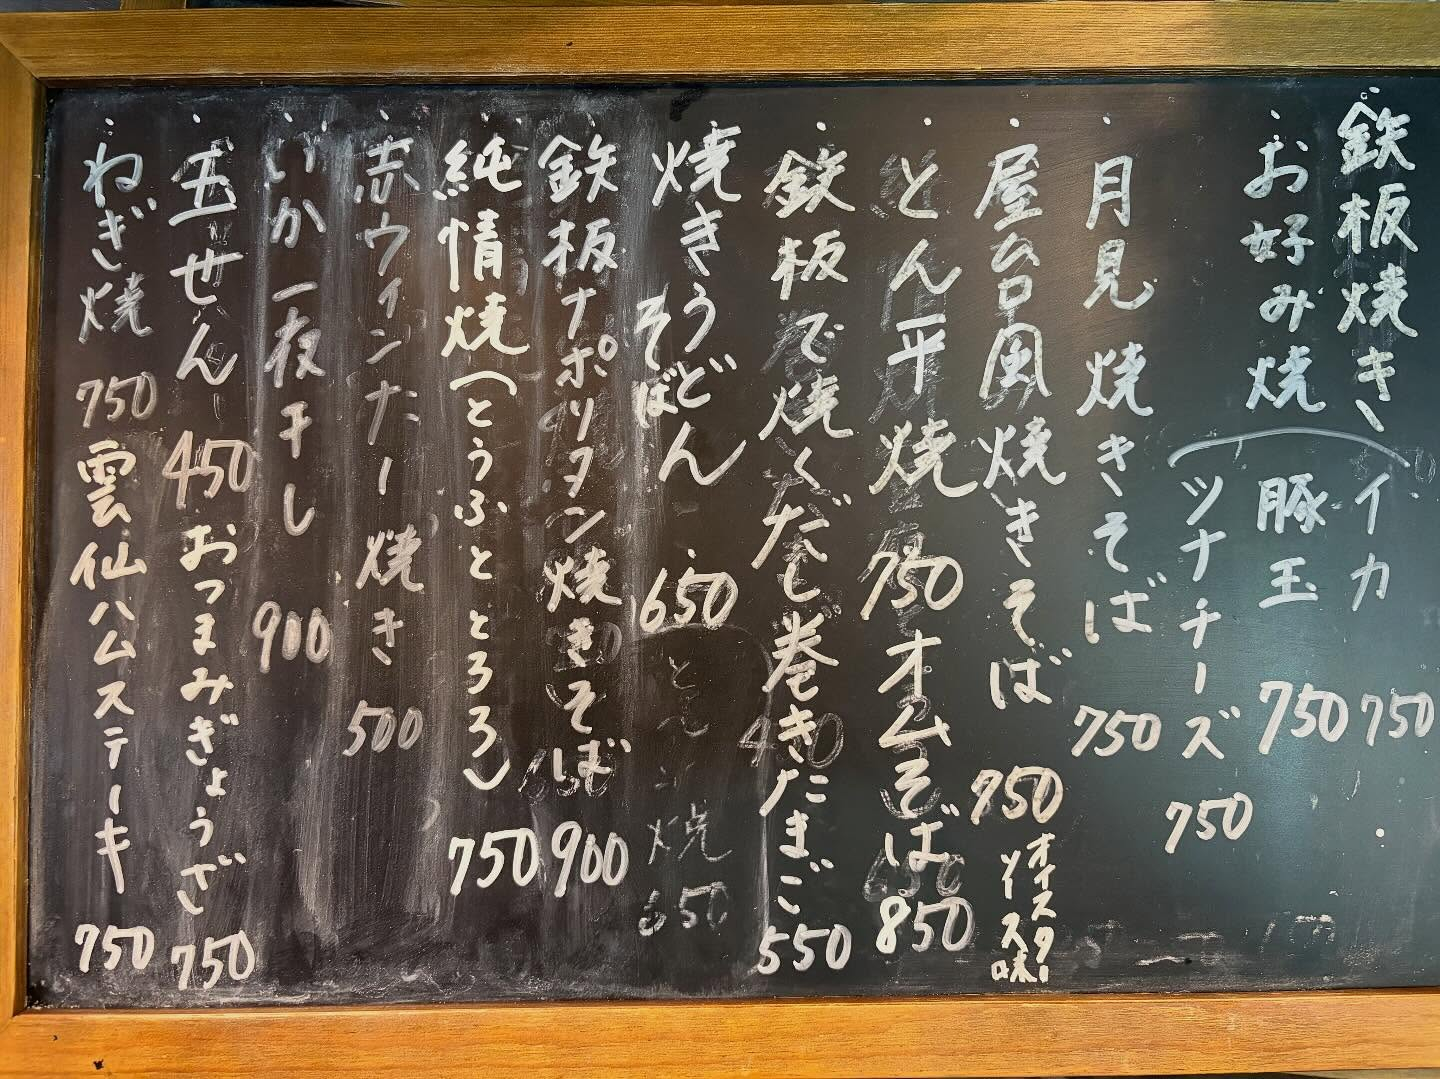 鉄板焼き
イカ 750
お好み焼
豚玉 750
ツナチーズ 750
月見焼きそば 750
屋台風焼きそば 750
オイスター
ソース味
とん平焼 750
オムそば 850
鉄板で焼くだし巻きたまご 550
焼きうどん
そば
650
鉄板ナポリタン焼きそば 900
純情焼(とうふととろろ) 750
赤ウィンナー焼き 500
いか一夜干し 900
玉せん 450
おつまみぎょうざ 750
ねぎ焼 750
雲仙ハムステーキ 750